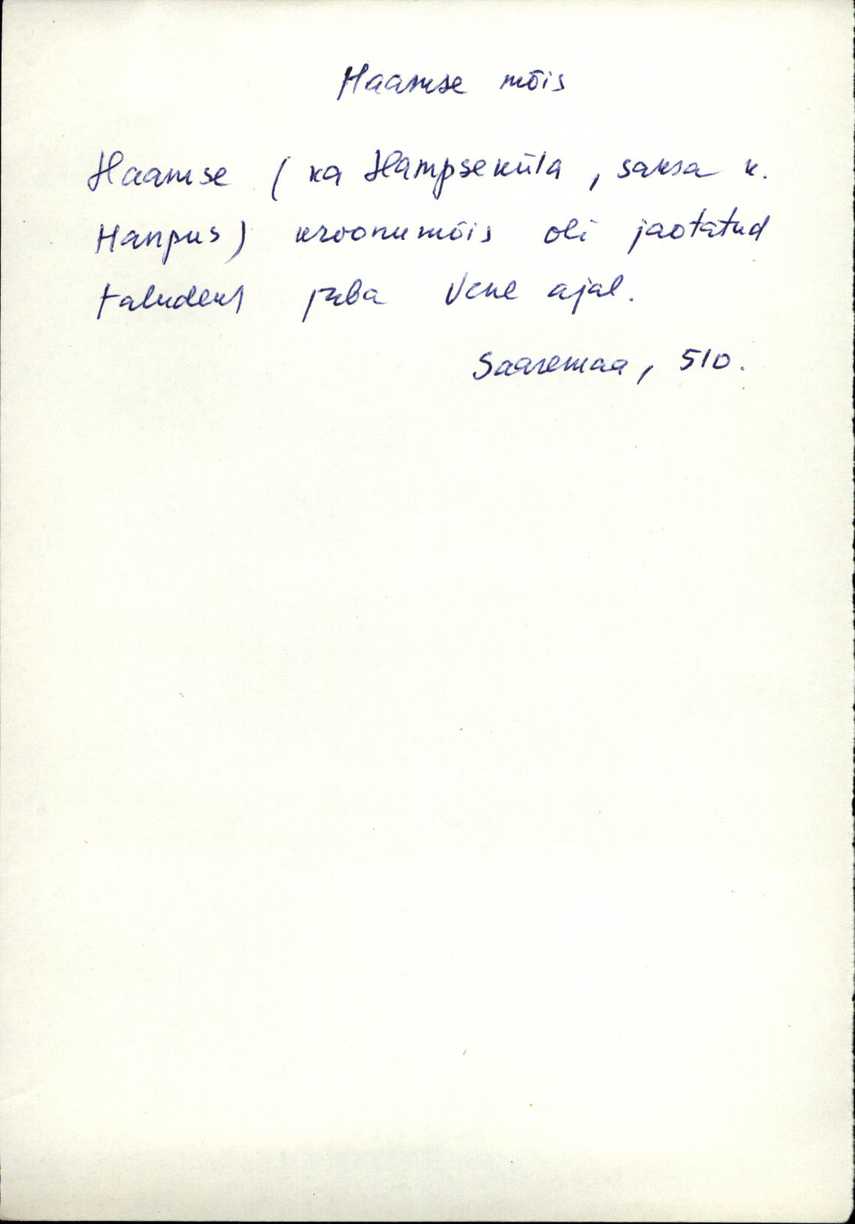 Haamse mõis
Haamse (ka Hampseküla, saksa k.
Hanpus) kroonumõis oli jaotatud
taludeks juba Vene ajal.
Saaremaa, 510.